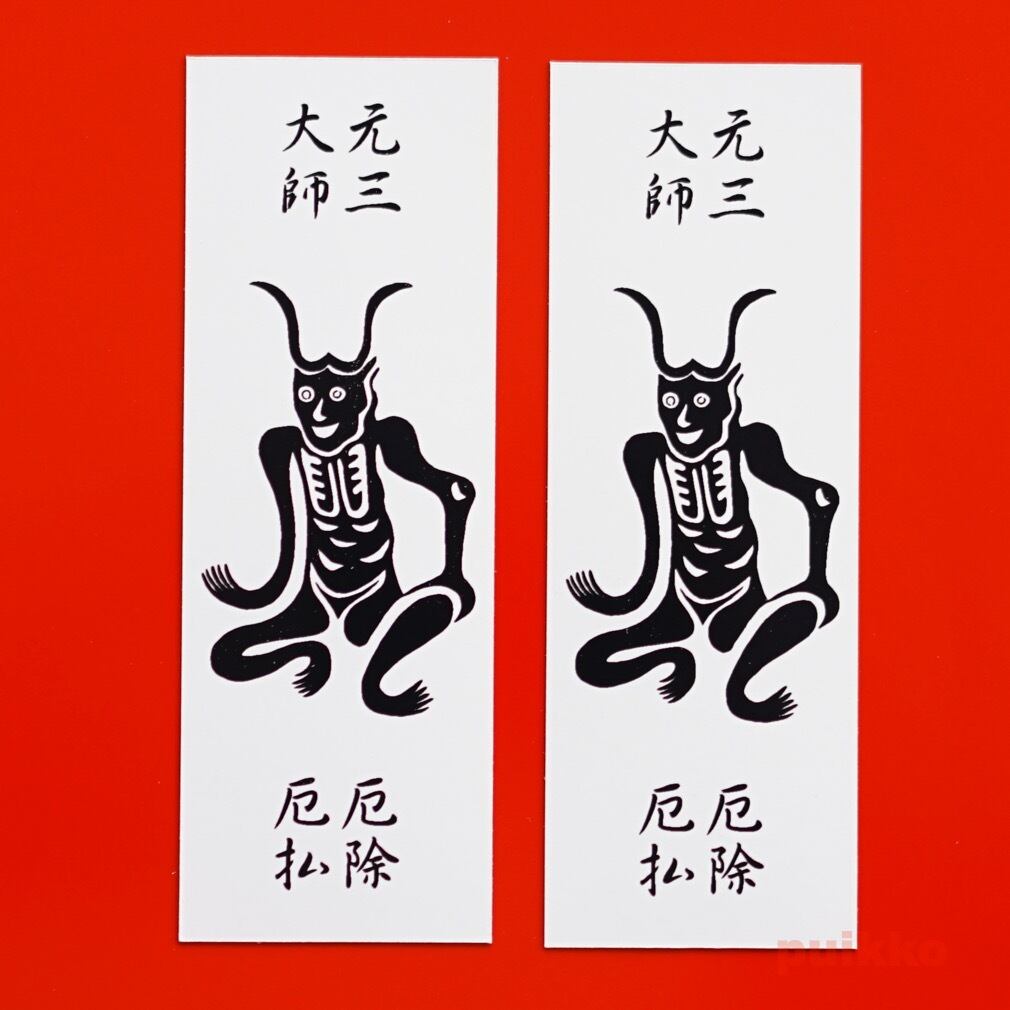 元三
大師
厄除
厄払
元三
大師
厄除
厄払
puikko